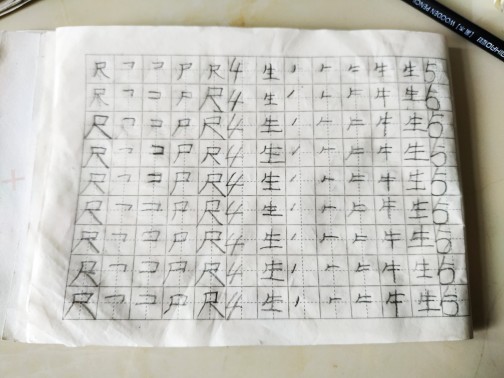 尺 ㇕ コ 尸 尺 4 生 丿 𠂉 ⺧ 牛 生 5
尺 ㇕ コ 尸 尺 4 生 丿 𠂉 ⺧ 牛 生 5
尺 ㇕ コ 尸 尺 4 生 丿 𠂉 ⺧ 牛 生 5
尺 ㇕ コ 尸 尺 4 生 丿 𠂉 ⺧ 牛 生 5
尺 ㇕ コ 尸 尺 4 生 丿 𠂉 ⺧ 牛 生 5
尺 ㇕ コ 尸 尺 4 生 丿 𠂉 ⺧ 牛 生 5
尺 ㇕ コ 尸 尺 4 生 丿 𠂉 ⺧ 牛 生 5
尺 ㇕ コ 尸 尺 4 生 丿 𠂉 ⺧ 牛 生 5
尺 ㇕ コ 尸 尺 4 生 丿 𠂉 ⺧ 牛 生 5
WOODEN